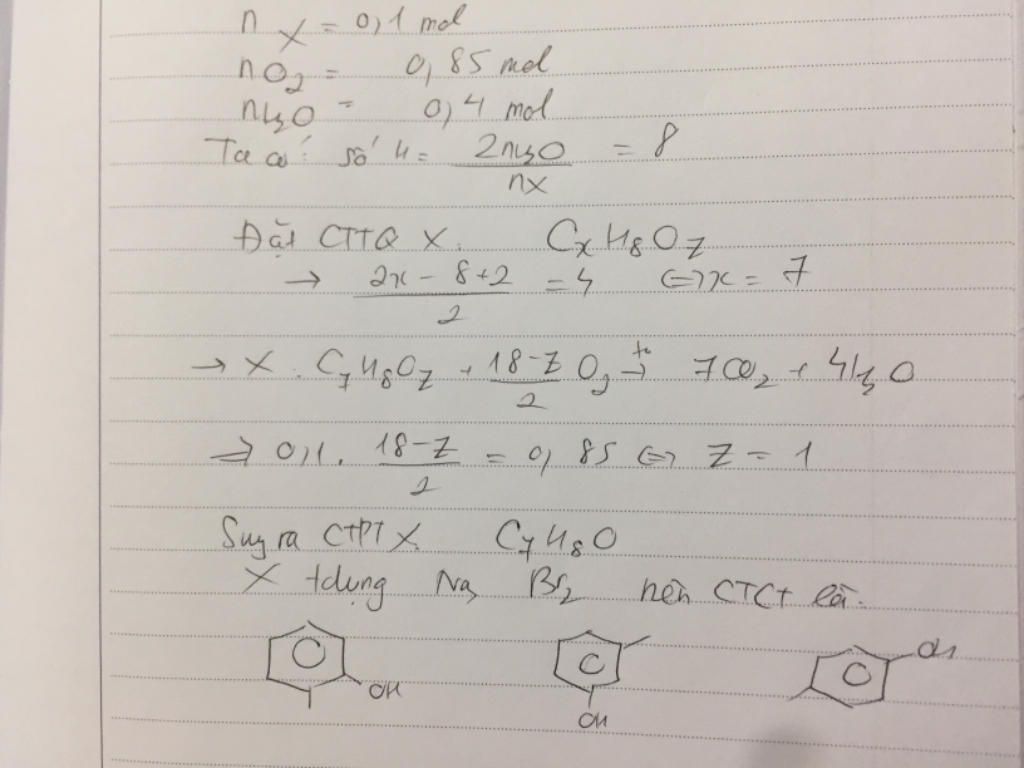 n X = 0,1 mol
nO2 = 0,85 mol
nH2O = 0,4 mol
Ta có số H = 2nH2O / nX = 8
Đặt CTTQ X. CxH8Oz
→ (2x - 8 + 2) / 2 = 4 ⇔ x = 7
→ X. C7H8Oz + (18-z)/2 O2 →(to) 7CO2 + 4H2O
⇒ 0,1. (18-z)/2 = 0,85 ⇔ z = 1
Suy ra CTPT X. C7H8O
X tdụng Na, Br2 nên CTCT là:
OH
OH
OH